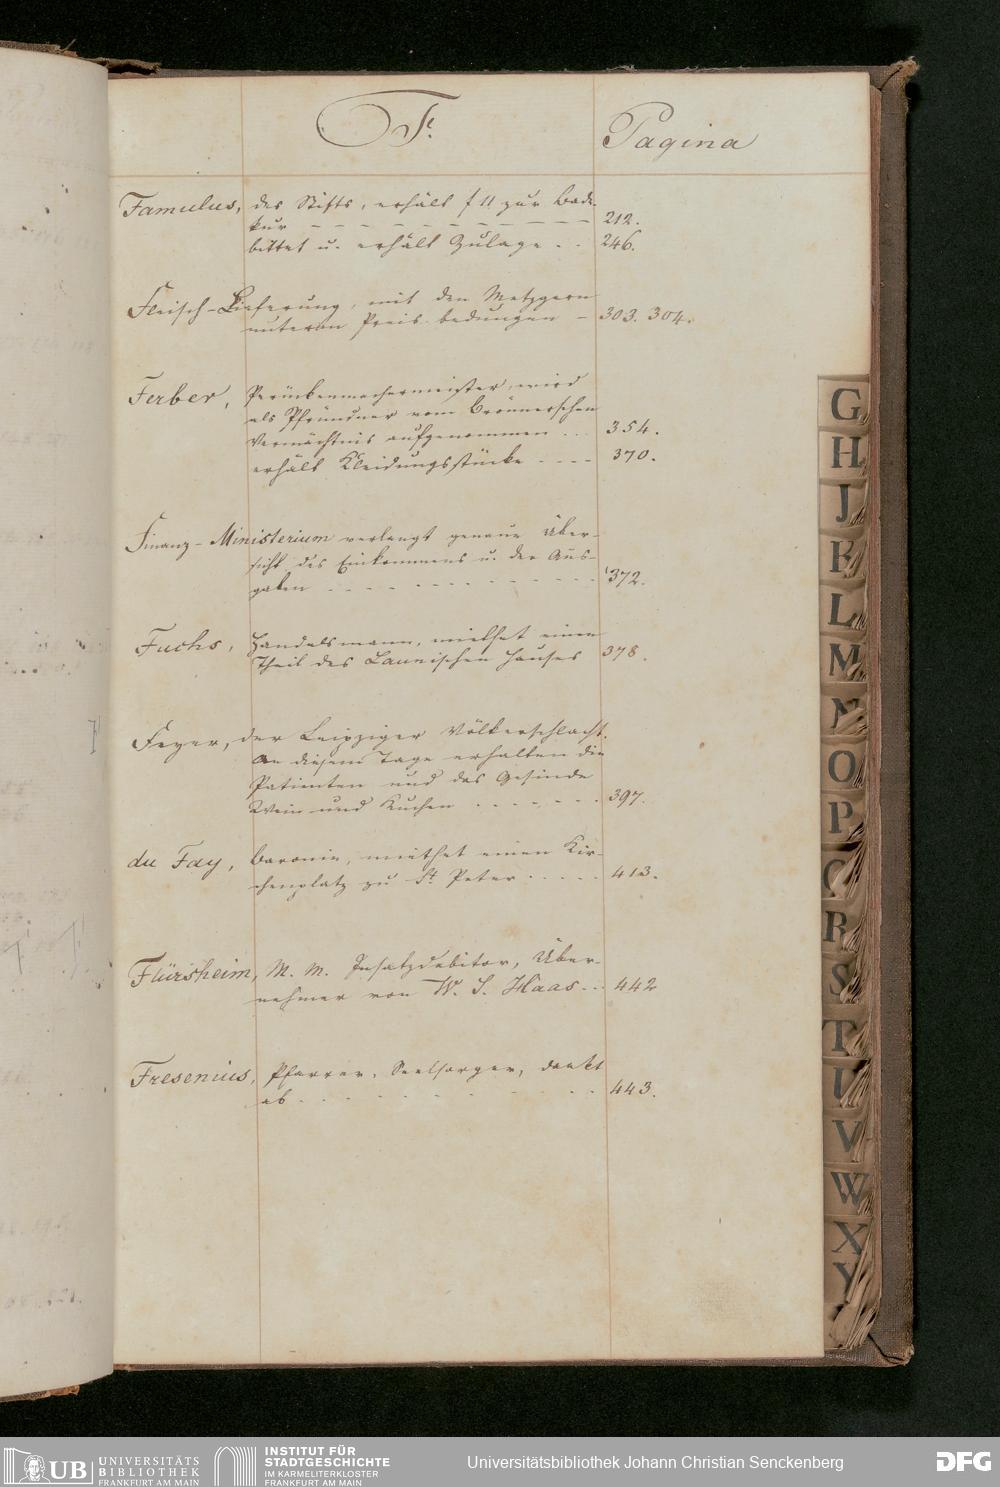 F.
Pagina
Famulus, des Stifts, erhält f 11 zur Bade-
kur - - - - - - - - - 212.
bittet u. erhält Zulage . . 246.
Fleisch-Lieferung, mit den Metzgern
unteren Preis bedungen - 303. 304.
Ferber, Perückenmachermeister, wird
als Pfründner vom Brönnerschen
Vermächtnis aufgenommen . . . 354.
erhält Kleidungsstücke - - - - 370.
Finanz-Ministerium verlangt genaue Über-
sicht des Einkommens u. der Aus-
gaben - - - - - - - - - - 372.
Fuchs, Handelsmann, miethet einen
Theil des Launischen Hauses 378.
Feyer, der Leipziger Völkerschlacht.
An diesem Tage erhalten die
Patienten und das Gesinde
Wein und Kuchen . . . . . . . 397.
du Fay, Baronin, miethet einen Kir-
chenplatz zu St. Peter . . . . . 413.
Flürsheim, M. M. Insatzdebitor, Über-
nehmer von W. S. Haas . . . 442
Fresenius, Pfarrer, Seelsorger, dankt
ab . . . . . . . . . . 443.
G
H
J
K
L
M
N
O
P
Q
R
S
T
U
V
W
X
Y
UB UNIVERSITÄTS
BIBLIOTHEK
FRANKFURT AM MAIN
INSTITUT FÜR
STADTGESCHICHTE
IM KARMELITERKLOSTER
FRANKFURT AM MAIN
Universitätsbibliothek Johann Christian Senckenberg
DFG